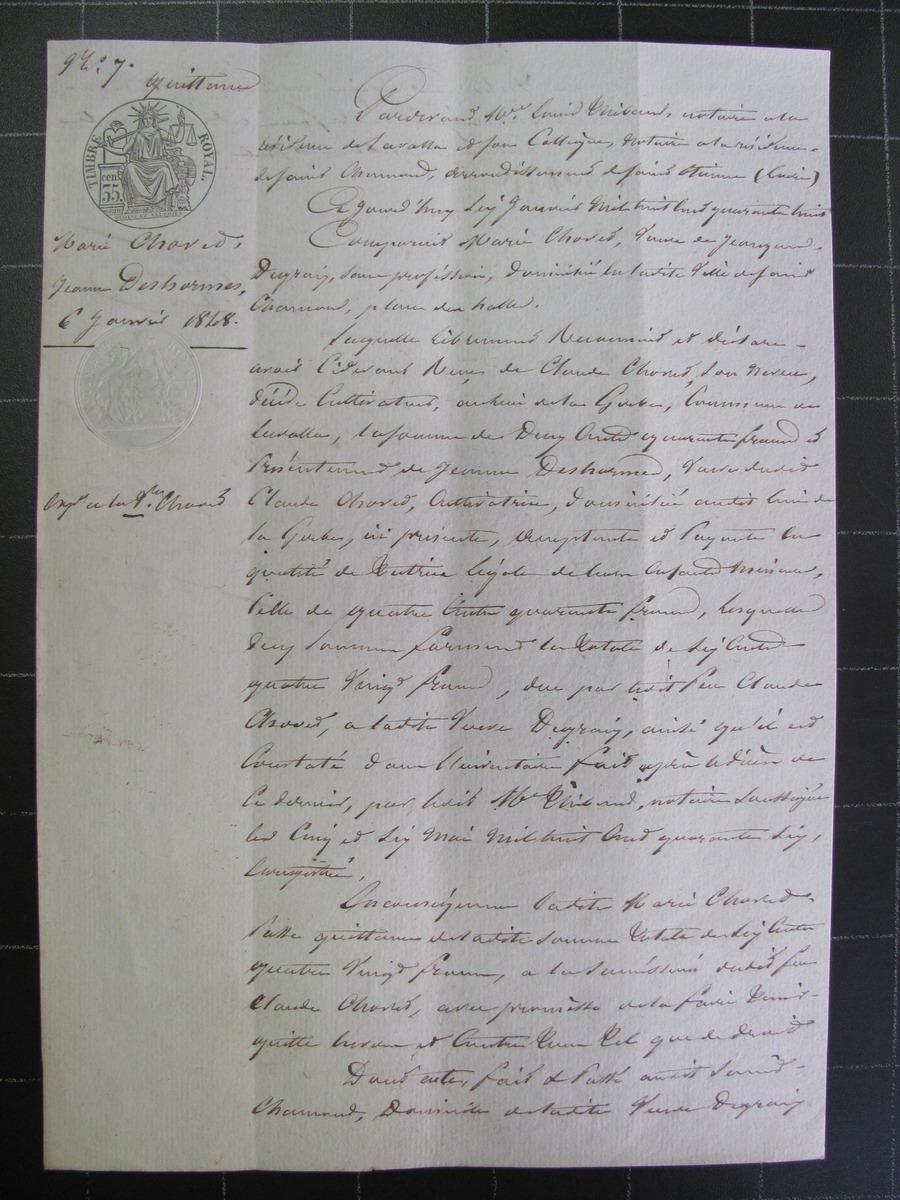 Quittance
TIMBRE ROYAL
cen 35
Marie Chovet,
Jeanne Desharmes,
6 Janvier 1848.
Expn a la Ve Chovet
Pardevant Me Louis Thibaud, notaire a la
résidence de Lavalla et son Collègue, notaire a la résidence
de saint Chamond, arrondissement de saint Etienne (Loire)
Aujourd'huy six Janvier mil huit cent quarante huit
Comparait Marie Chovet, Veuve de
Degraix, sans profession, domiciliée en ladite Ville de saint
Chamond, place des halles.
Laquelle librement Reconnait et déclare
avoir Cidevant Reçu de Claude Chovet, son neveu,
décédé Cultivateur, au lieu de la Gerbe, Commune de
Lavalla, la somme de Deux Cents quarante francs et
Présentement de Jeanne Desharmes, Veuve dudit
Claude Chovet, Cultivatrice, domiciliée audit lieu de
la Gerbe, ici présente, acceptante et Payante en
qualité de Tutrice légale de leurs Enfants Mineurs,
Celle de quatre Cents quarante francs, lesquelles
deux sommes formant la Totale de Six Cents
quatre Vingt francs, due par ledit Feu Claude
Chovet, a ladite Veuve Degraix, ainsi qu'il est
Constaté dans l'inventaire fait après le décès de
Ce dernier, par ledit Me Thibaud, notaire soussigné
les Cinq et Six Mai Mil huit Cent quarante Six,
Enregistré.
En conséquence ladite Marie Chovet
Passe quittance de ladite somme Totale de Six Cents
quatre Vingt francs, a la succession dudit feu
Claude Chovet, avec promesse de la faire Tenir
quitte envers et Contre Tous Tel que de droit
Dont acte, fait & Passé audit Saint
Chamond, Domicile de ladite Veuve Degraix